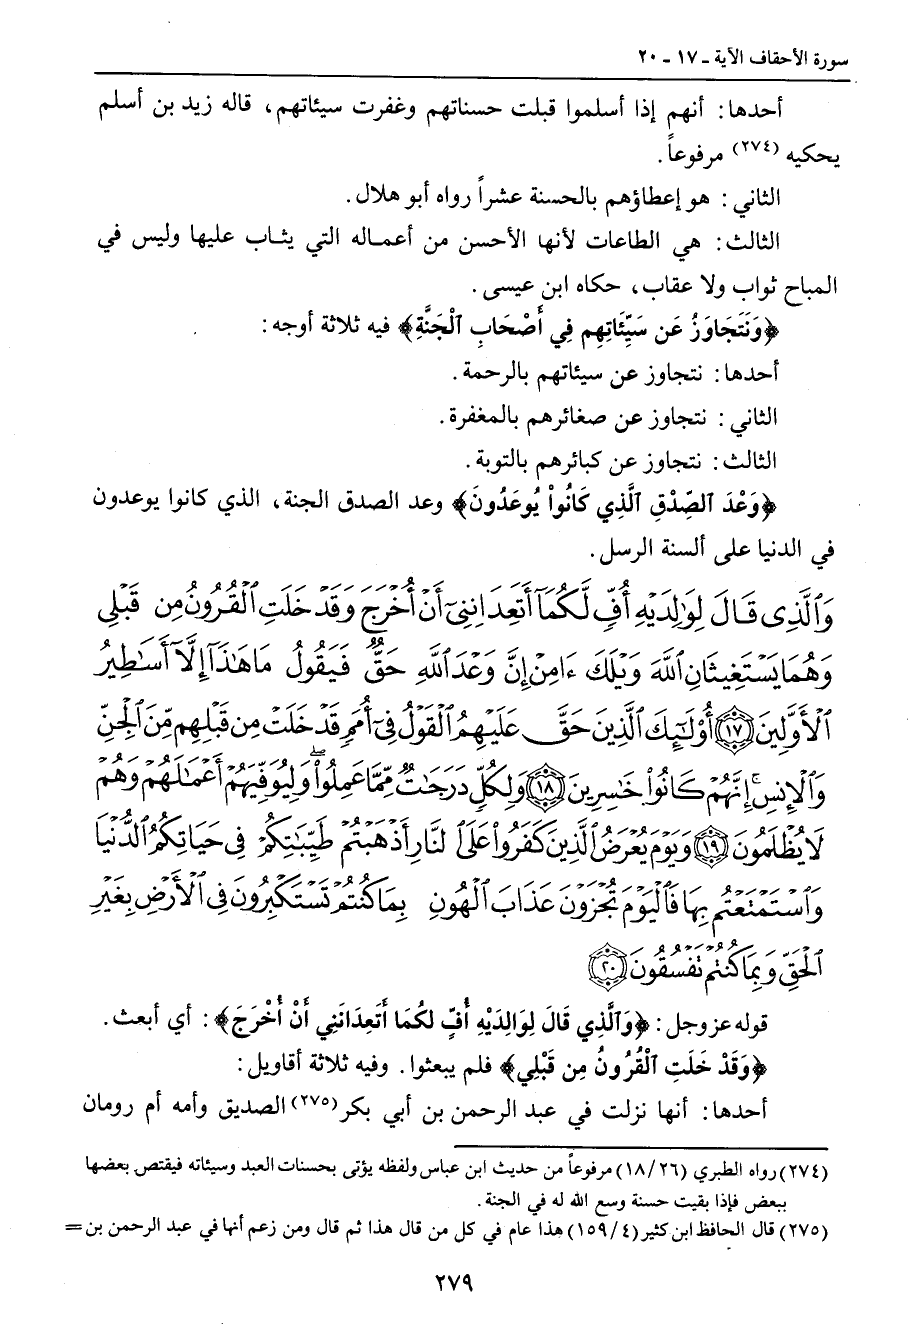 سورة الأحقاف الآية ـ ١٧ ـ ٢٠
أحدها: أنهم إذا أسلموا قبلت حسناتهم وغفرت سيئاتهم، قاله زيد بن أسلم
يحكيه (٢٧٤) مرفوعاً.
الثاني: هو إعطاؤهم بالحسنة عشراً رواه أبو هلال.
الثالث: هي الطاعات لأنها الأحسن من أعماله التي يثاب عليها وليس في
المباح ثواب ولا عقاب، حكاه ابن عيسى.
﴿وَنَتَجَاوَزُ عَن سَيِّئَاتِهِم فِي أَصْحَابِ ٱلْجَنَّةِ﴾ فيه ثلاثة أوجه:
أحدها: نتجاوز عن سيئاتهم بالرحمة.
الثاني: نتجاوز عن صغائرهم بالمغفرة.
الثالث: نتجاوز عن كبائرهم بالتوبة.
﴿وَعْدَ ٱلصِّدْقِ ٱلَّذِي كَانُواْ يُوعَدُونَ﴾ وعد الصدق الجنة، الذي كانوا يوعدون
في الدنيا على ألسنة الرسل.
وَٱلَّذِى قَالَ لِوَٰلِدَيْهِ أُفٍّ لَّكُمَآ أَتَعِدَانِنِىٓ أَنْ أُخْرَجَ وَقَدْ خَلَتِ ٱلْقُرُونُ مِن قَبْلِى
وَهُمَا يَسْتَغِيثَانِ ٱللَّهَ وَيْلَكَ ءَامِنْ إِنَّ وَعْدَ ٱللَّهِ حَقٌّ فَيَقُولُ مَا هَٰذَآ إِلَّآ أَسَٰطِيرُ
ٱلْأَوَّلِينَ ١٧ أُوْلَٰٓئِكَ ٱلَّذِينَ حَقَّ عَلَيْهِمُ ٱلْقَوْلُ فِىٓ أُمَمٍ قَدْ خَلَتْ مِن قَبْلِهِم مِّنَ ٱلْجِنِّ
وَٱلْإِنسِ ۖ إِنَّهُمْ كَانُواْ خَٰسِرِينَ ١٨ وَلِكُلٍّ دَرَجَٰتٌ مِّمَّا عَمِلُواْ ۖ وَلِيُوَفِّيَهُمْ أَعْمَٰلَهُمْ وَهُمْ
لَا يُظْلَمُونَ ١٩ وَيَوْمَ يُعْرَضُ ٱلَّذِينَ كَفَرُواْ عَلَى ٱلنَّارِ أَذْهَبْتُمْ طَيِّبَٰتِكُمْ فِى حَيَاتِكُمُ ٱلدُّنْيَا
وَٱسْتَمْتَعْتُم بِهَا فَٱلْيَوْمَ تُجْزَوْنَ عَذَابَ ٱلْهُونِ بِمَا كُنتُمْ تَسْتَكْبِرُونَ فِى ٱلْأَرْضِ بِغَيْرِ
ٱلْحَقِّ وَبِمَا كُنتُمْ تَفْسُقُونَ ٢٠
قوله عز وجل: ﴿وَٱلَّذِي قَالَ لِوَالِدَيْهِ أُفٍّ لَكُمَا أَتَعِدَانَنِي أَنْ أُخْرَجَ﴾: أي أبعث.
﴿وَقَدْ خَلَتِ ٱلْقُرُونُ مِن قَبْلِي﴾ فلم يبعثوا. وفيه ثلاثة أقاويل:
أحدها: أنها نزلت في عبد الرحمن بن أبي بكر(٢٧٥) الصديق وأمه أم رومان
(٢٧٤) رواه الطبري (١٨/٢٦) مرفوعاً من حديث ابن عباس ولفظه يؤتى بحسنات العبد وسيئاته فيقتص بعضها
ببعض فإذا بقيت حسنة وسع الله له في الجنة.
(٢٧٥) قال الحافظ ابن كثير (١٥٩/٤) هذا عام في كل من قال هذا ثم قال ومن زعم أنها في عبد الرحمن بن =
٢٧٩